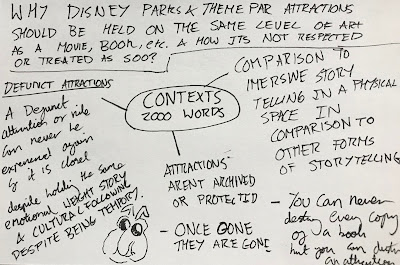 WHY DISNEY PARKS & THEME PAR ATTRACTIONS
SHOULD BE HELD ON THE SAME LEVEL OF ART
AS A MOVIE, BOOK, etc. & HOW ITS NOT RESPECTED
OR TREATED AS SOO?
DEFUNCT ATTRACTIONS
A Defunct
attraction or ride
can never be
experienced again
if it is closed
despite holding the same
emotional WEIGHT STORY
& CULTURAL FOLLOWING
DESPITE BEING TEMPORY.
CONTEXTS
2000 WORDS
COMPARISON TO
IMERSIVE STORY
TELLING IN A PHYSICAL
SPACE IN
COMPARISON TO
OTHER FORMS
OF STORYTELLING
ATTRACTIONS
ARENT ARCHIVED
OR PROTECTID
- ONCE GONE
THEY ARE GONE
- You can never
destroy every copy
of a book
but you can
an attraction